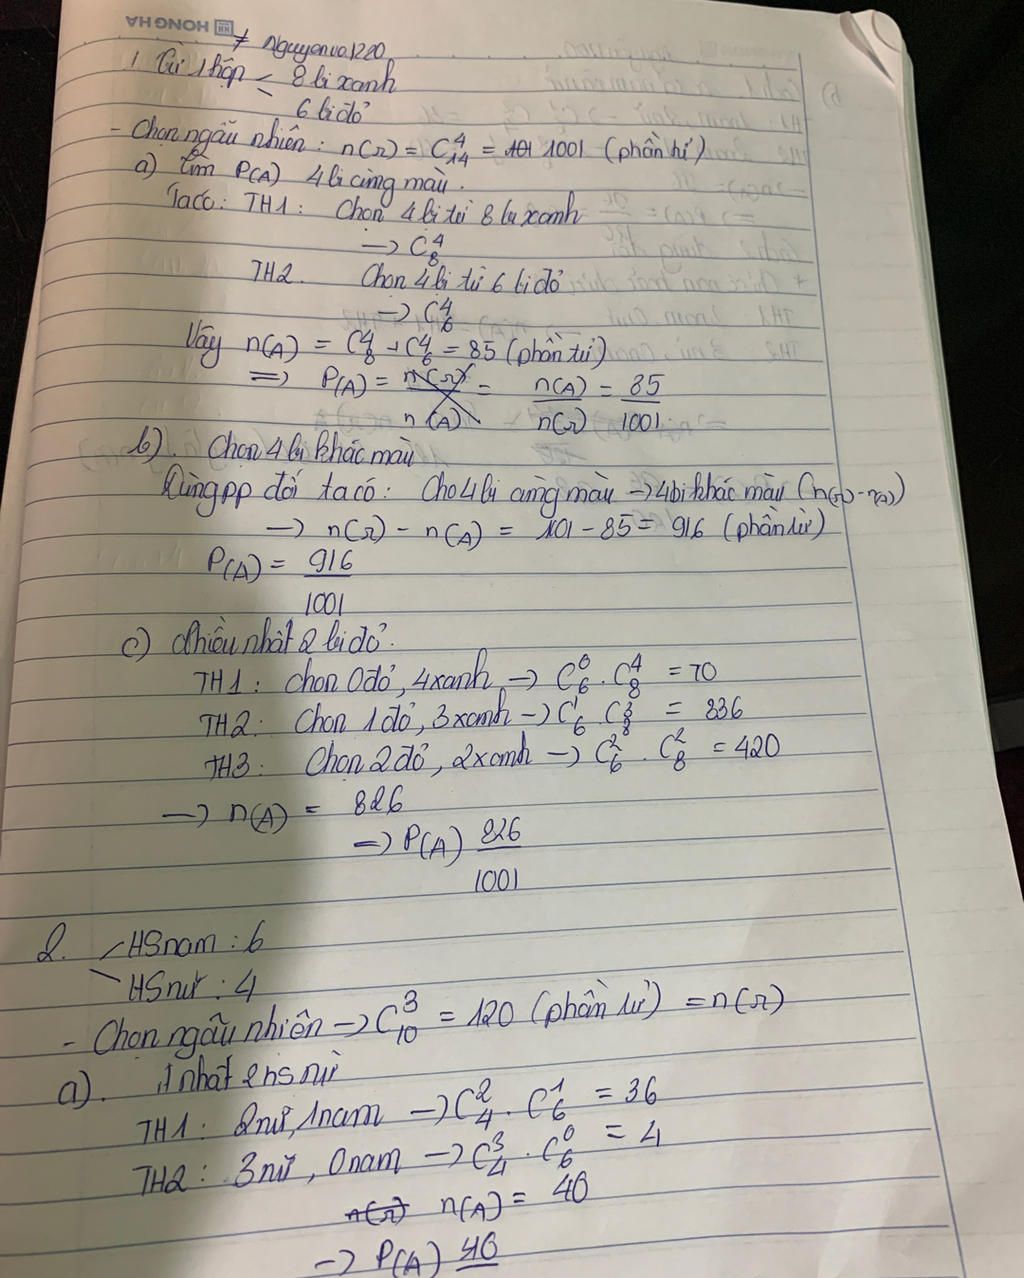 HONG HA
Nguyenvo.1220
1 Từ 1 hộp < 8 bi xanh
6 bi đỏ
- Chọn ngẫu nhiên : n(Ω) = C₁₄⁴ = 1001 (phần tử)
a) Tìm P(A) 4 bi cùng màu.
Ta có : TH1 : Chọn 4 bi từ 8 bi xanh
→ C₈⁴
TH2. Chọn 4 bi từ 6 bi đỏ
→ C₆⁴
Vậy n(A) = C₈⁴ + C₆⁴ = 85 (phần tử)
=> P(A) = n(A)/n(Ω) = 85/1001
b). Chọn 4 bi khác màu
Dùng pp đối ta có : Cho 4 bi cùng màu → 4 bi khác màu (n(Ω) - n(A))
→ n(Ω) - n(A) = 101 - 85 = 916 (phần tử)
P(A) = 916/1001
c) Nhiều nhất 2 bi đỏ.
TH1 : Chọn 0 đỏ, 4 xanh → C₆⁰ . C₈⁴ = 70
TH2 : Chọn 1 đỏ, 3 xanh → C₆¹ . C₈³ = 336
TH3 : Chọn 2 đỏ, 2 xanh → C₆² . C₈² = 420
→ n(A) = 826
→ P(A) 826/1001
2. HS nam : 6
HS nữ : 4
- Chọn ngẫu nhiên → C₁₀³ = 120 (phần tử) = n(Ω)
a). ít nhất 2 hs nữ
TH1 : 2 nữ, 1 nam → C₄² . C₆¹ = 36
TH2 : 3 nữ, 0 nam → C₄³ . C₆⁰ = 4
n(A) = 40
→ P(A) 40